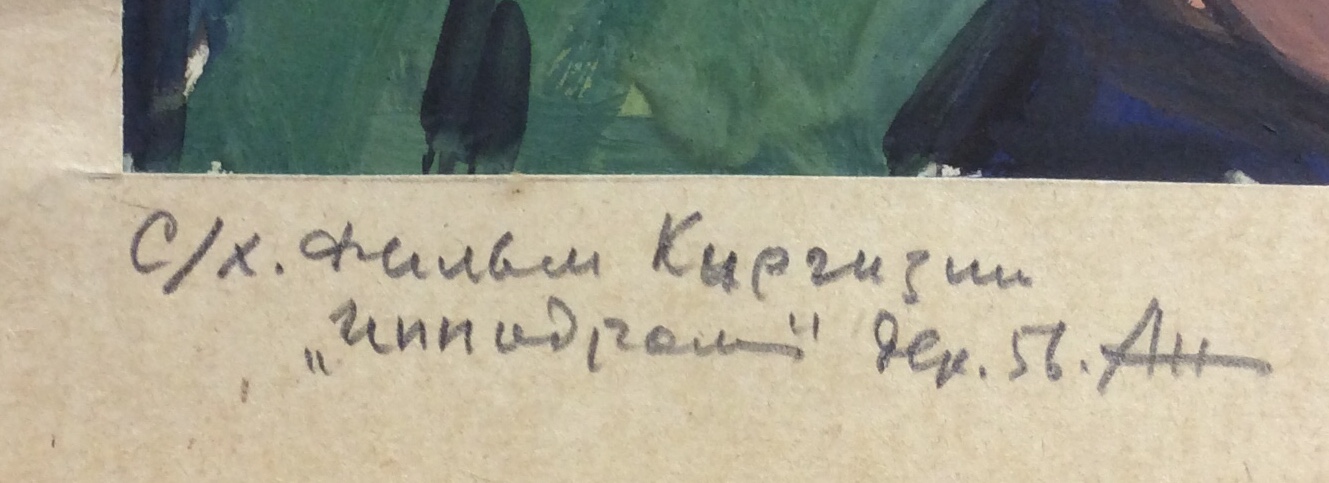 С/х. Фильм Киргизии
„Ипподром" дек. 56. Ан